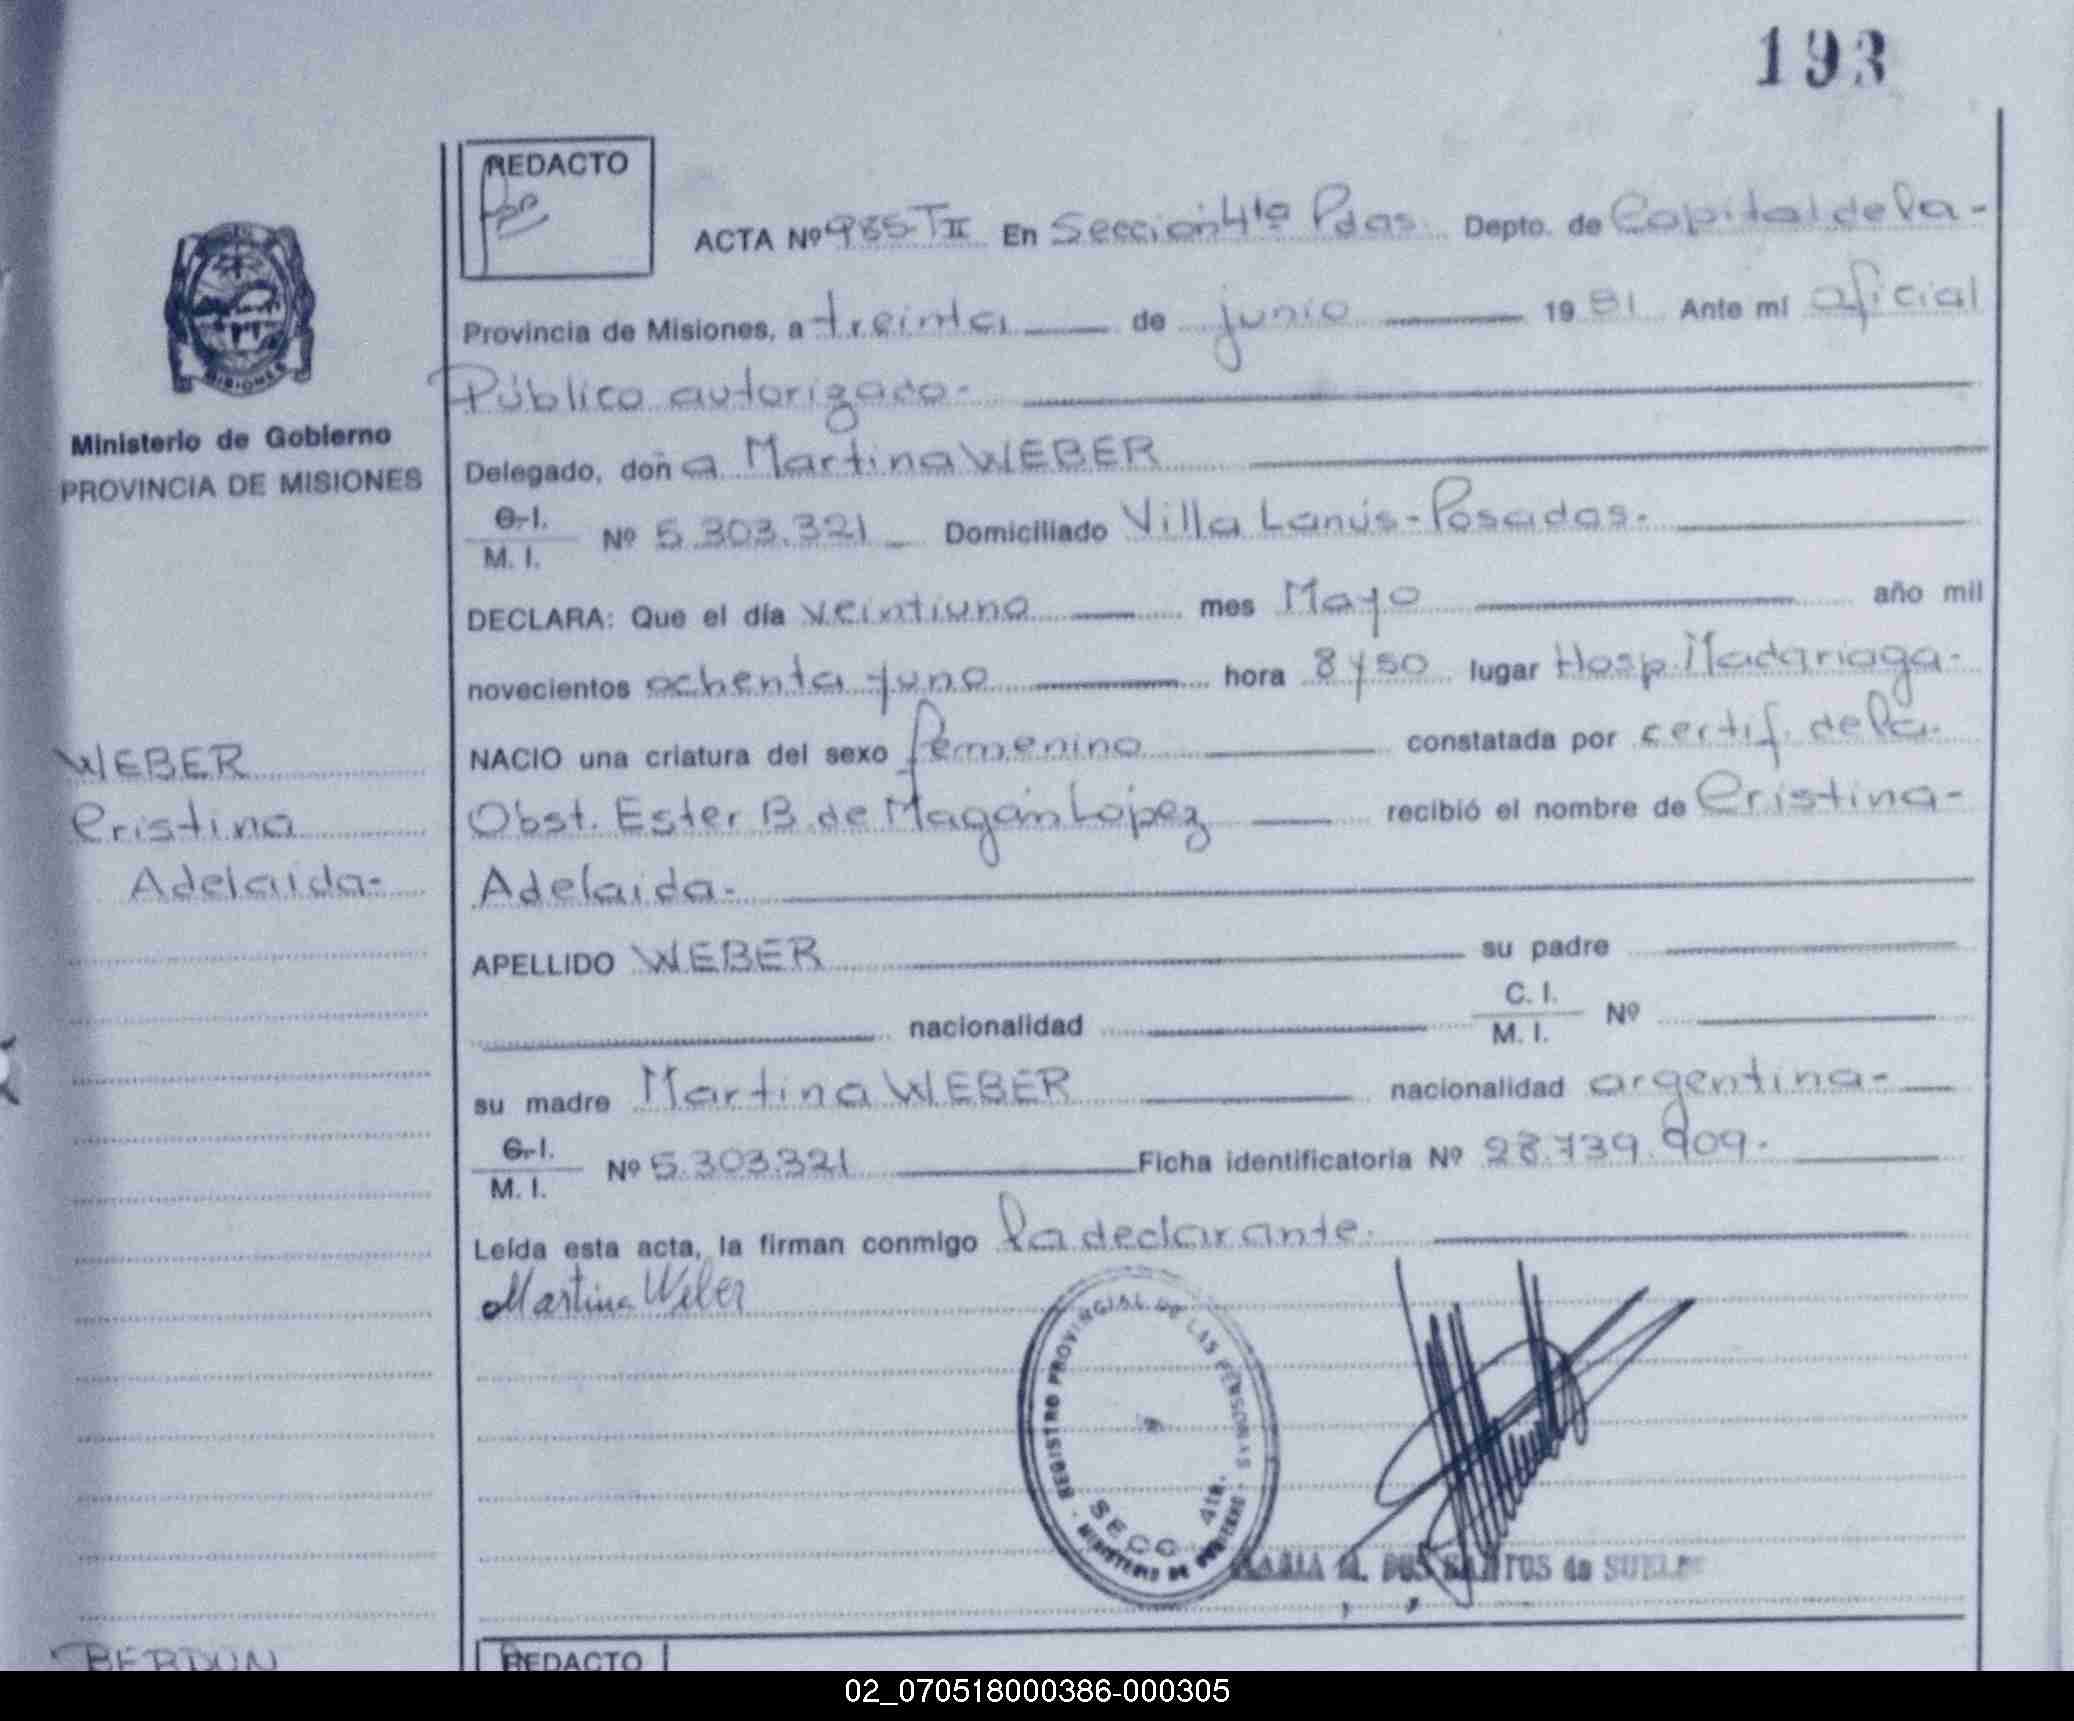 193
REDACTO
ACTA Nº 985 TII En Sección 4ta Pdas. Depto. de Capital de la-
Provincia de Misiones, a treinta de junio 1981 Ante mí oficial
Público autorizado-
Ministerio de Gobierno
PROVINCIA DE MISIONES
MISIONES
Delegado, doña Martina WEBER
C. I.
M. I. Nº 5.303.321 Domiciliado Villa Lanús-Posadas.
DECLARA: Que el día veintiuno mes Mayo año mil
novecientos ochenta y uno hora 8 y 50 lugar Hosp. Madariaga-
NACIO una criatura del sexo femenino constatada por certif. de la
Obst. Ester B. de Magán Lopez recibió el nombre de Cristina-
Adelaida-
WEBER
Cristina
Adelaida-
APELLIDO WEBER su padre
nacionalidad C. I.
M. I. Nº
su madre Martina WEBER nacionalidad argentina-
C. I.
M. I. Nº 5.303.321 Ficha identificatoria Nº 28.739.909.
Leída esta acta, la firman conmigo la declarante.
Martina Weber
REGISTRO PROVINCIAL DE LAS PERSONAS - MINISTERIO DE GOBIERNO -
SECC. 4ta.
MARIA M. DOS SANTOS de
BERDUN
REDACTO
02_070518000386-000305